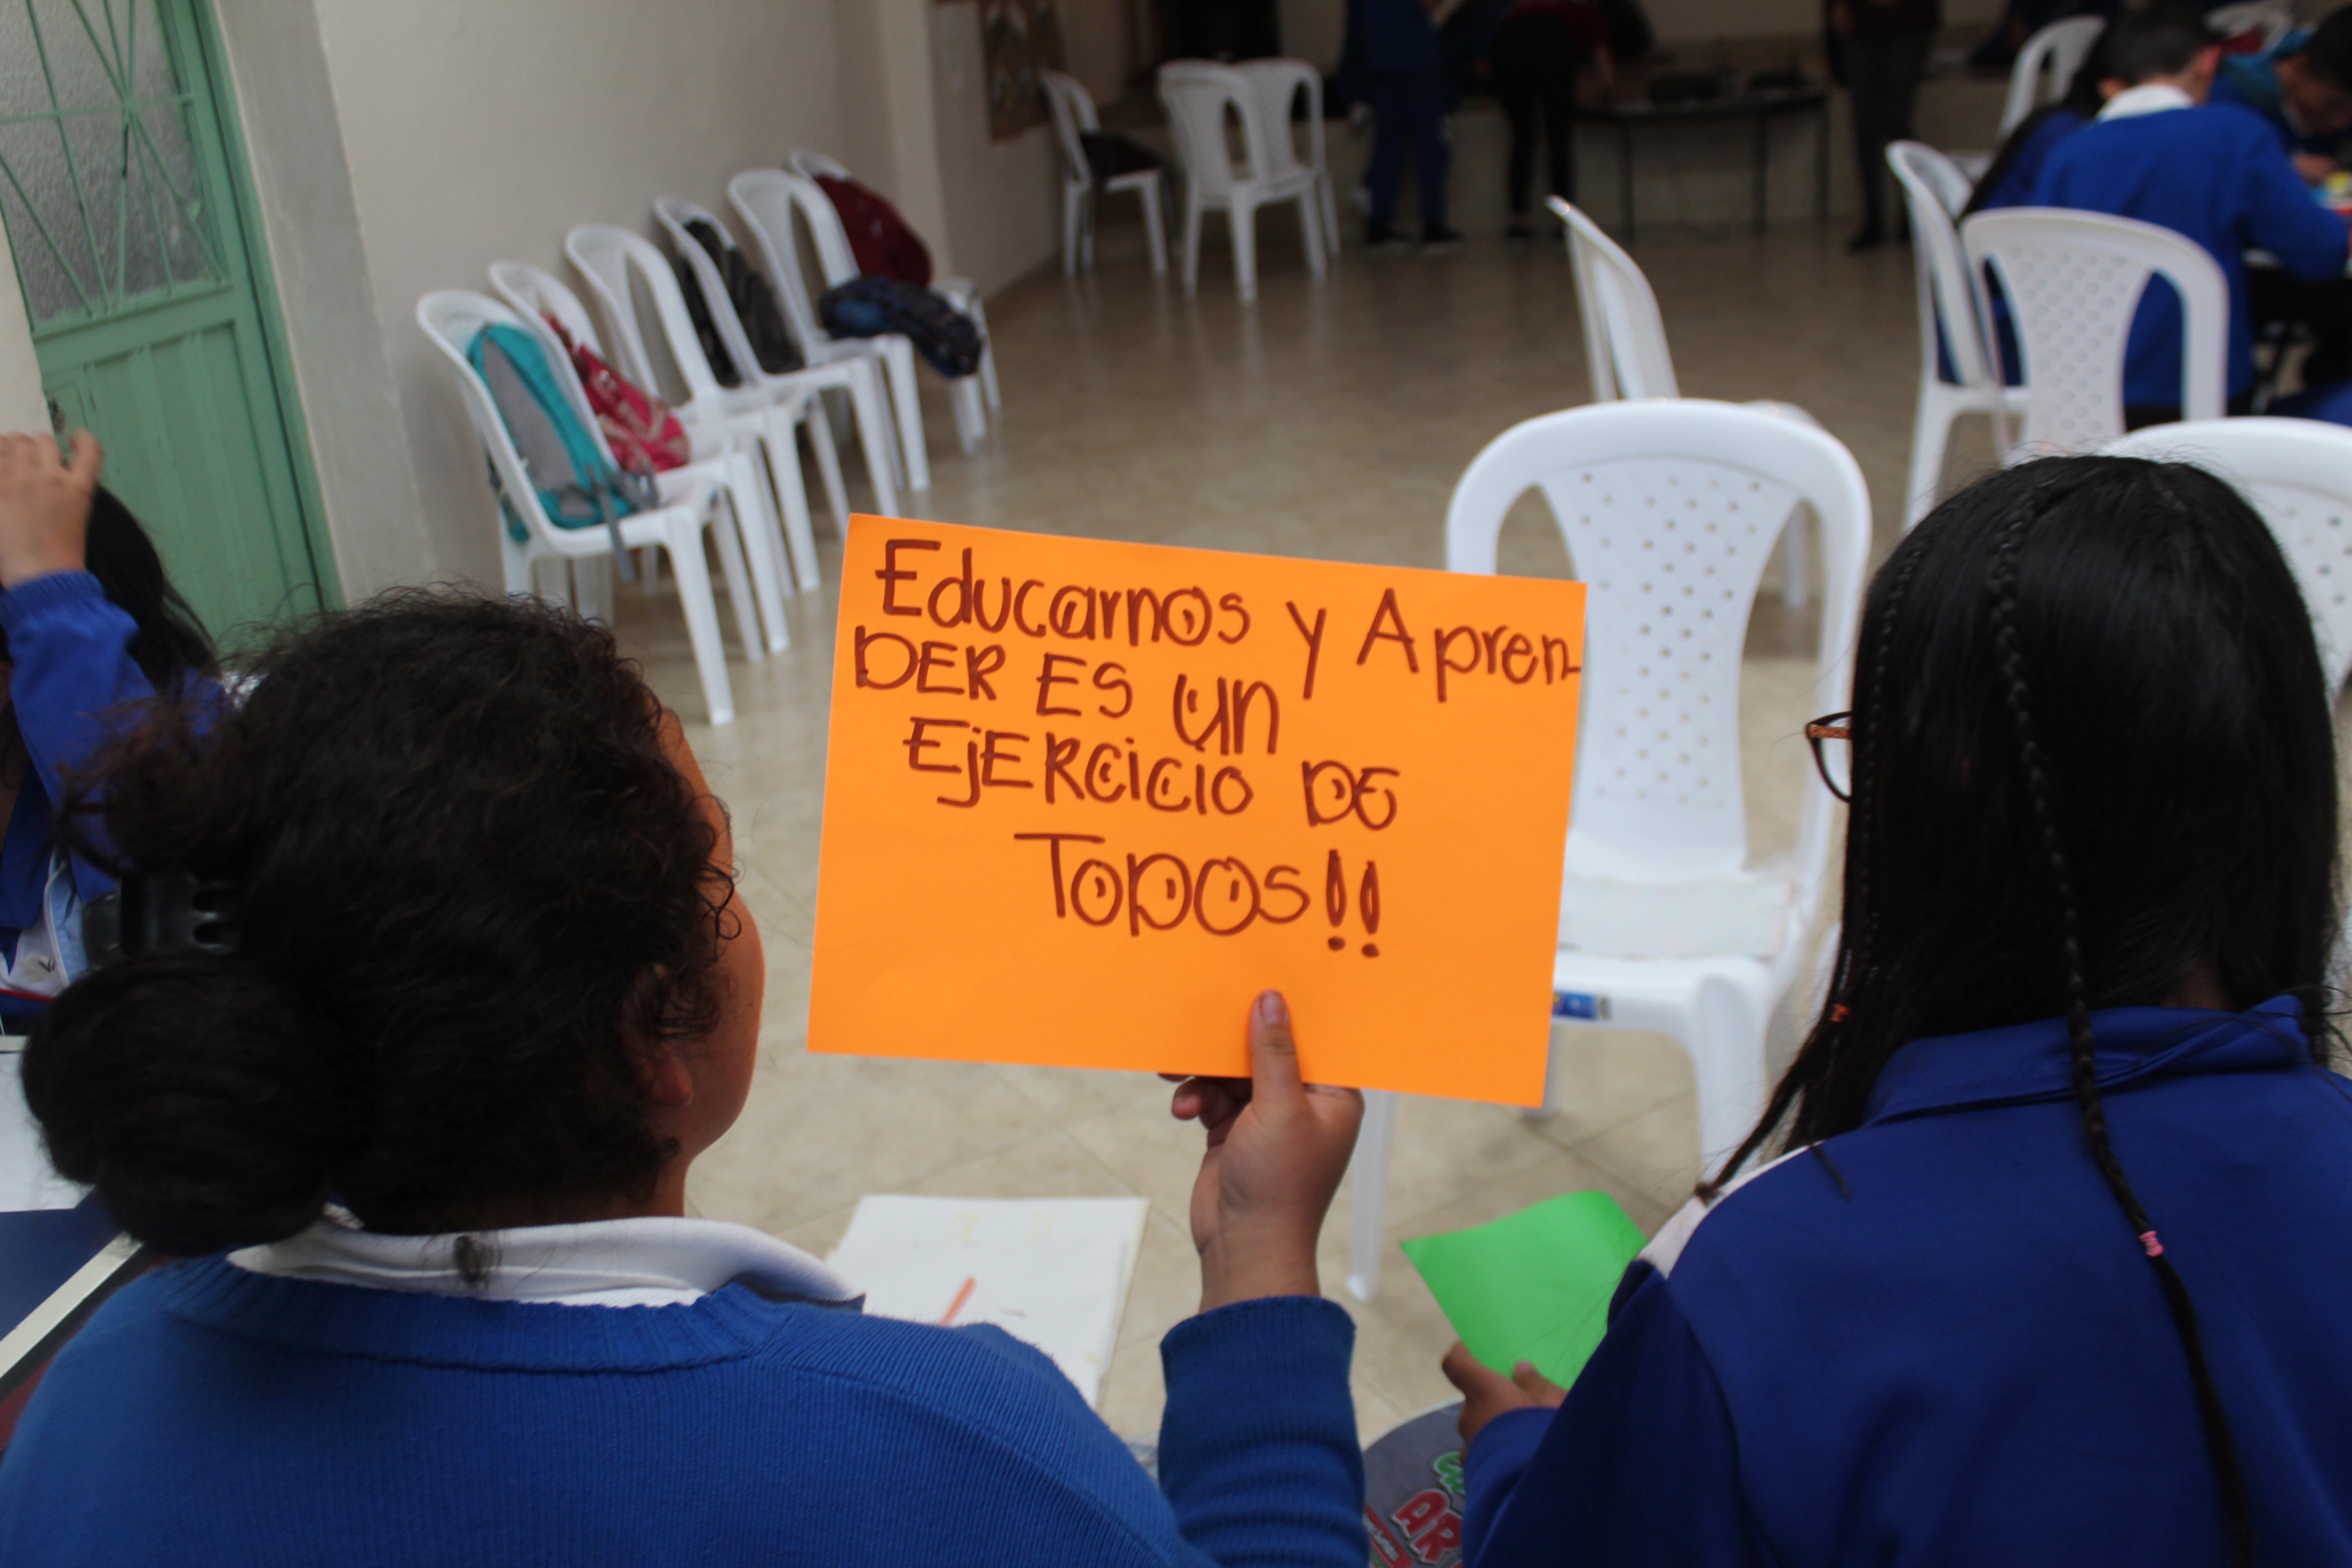 Educarnos y Apren-
DER ES un
EjERcicio DE
ToDOS!!